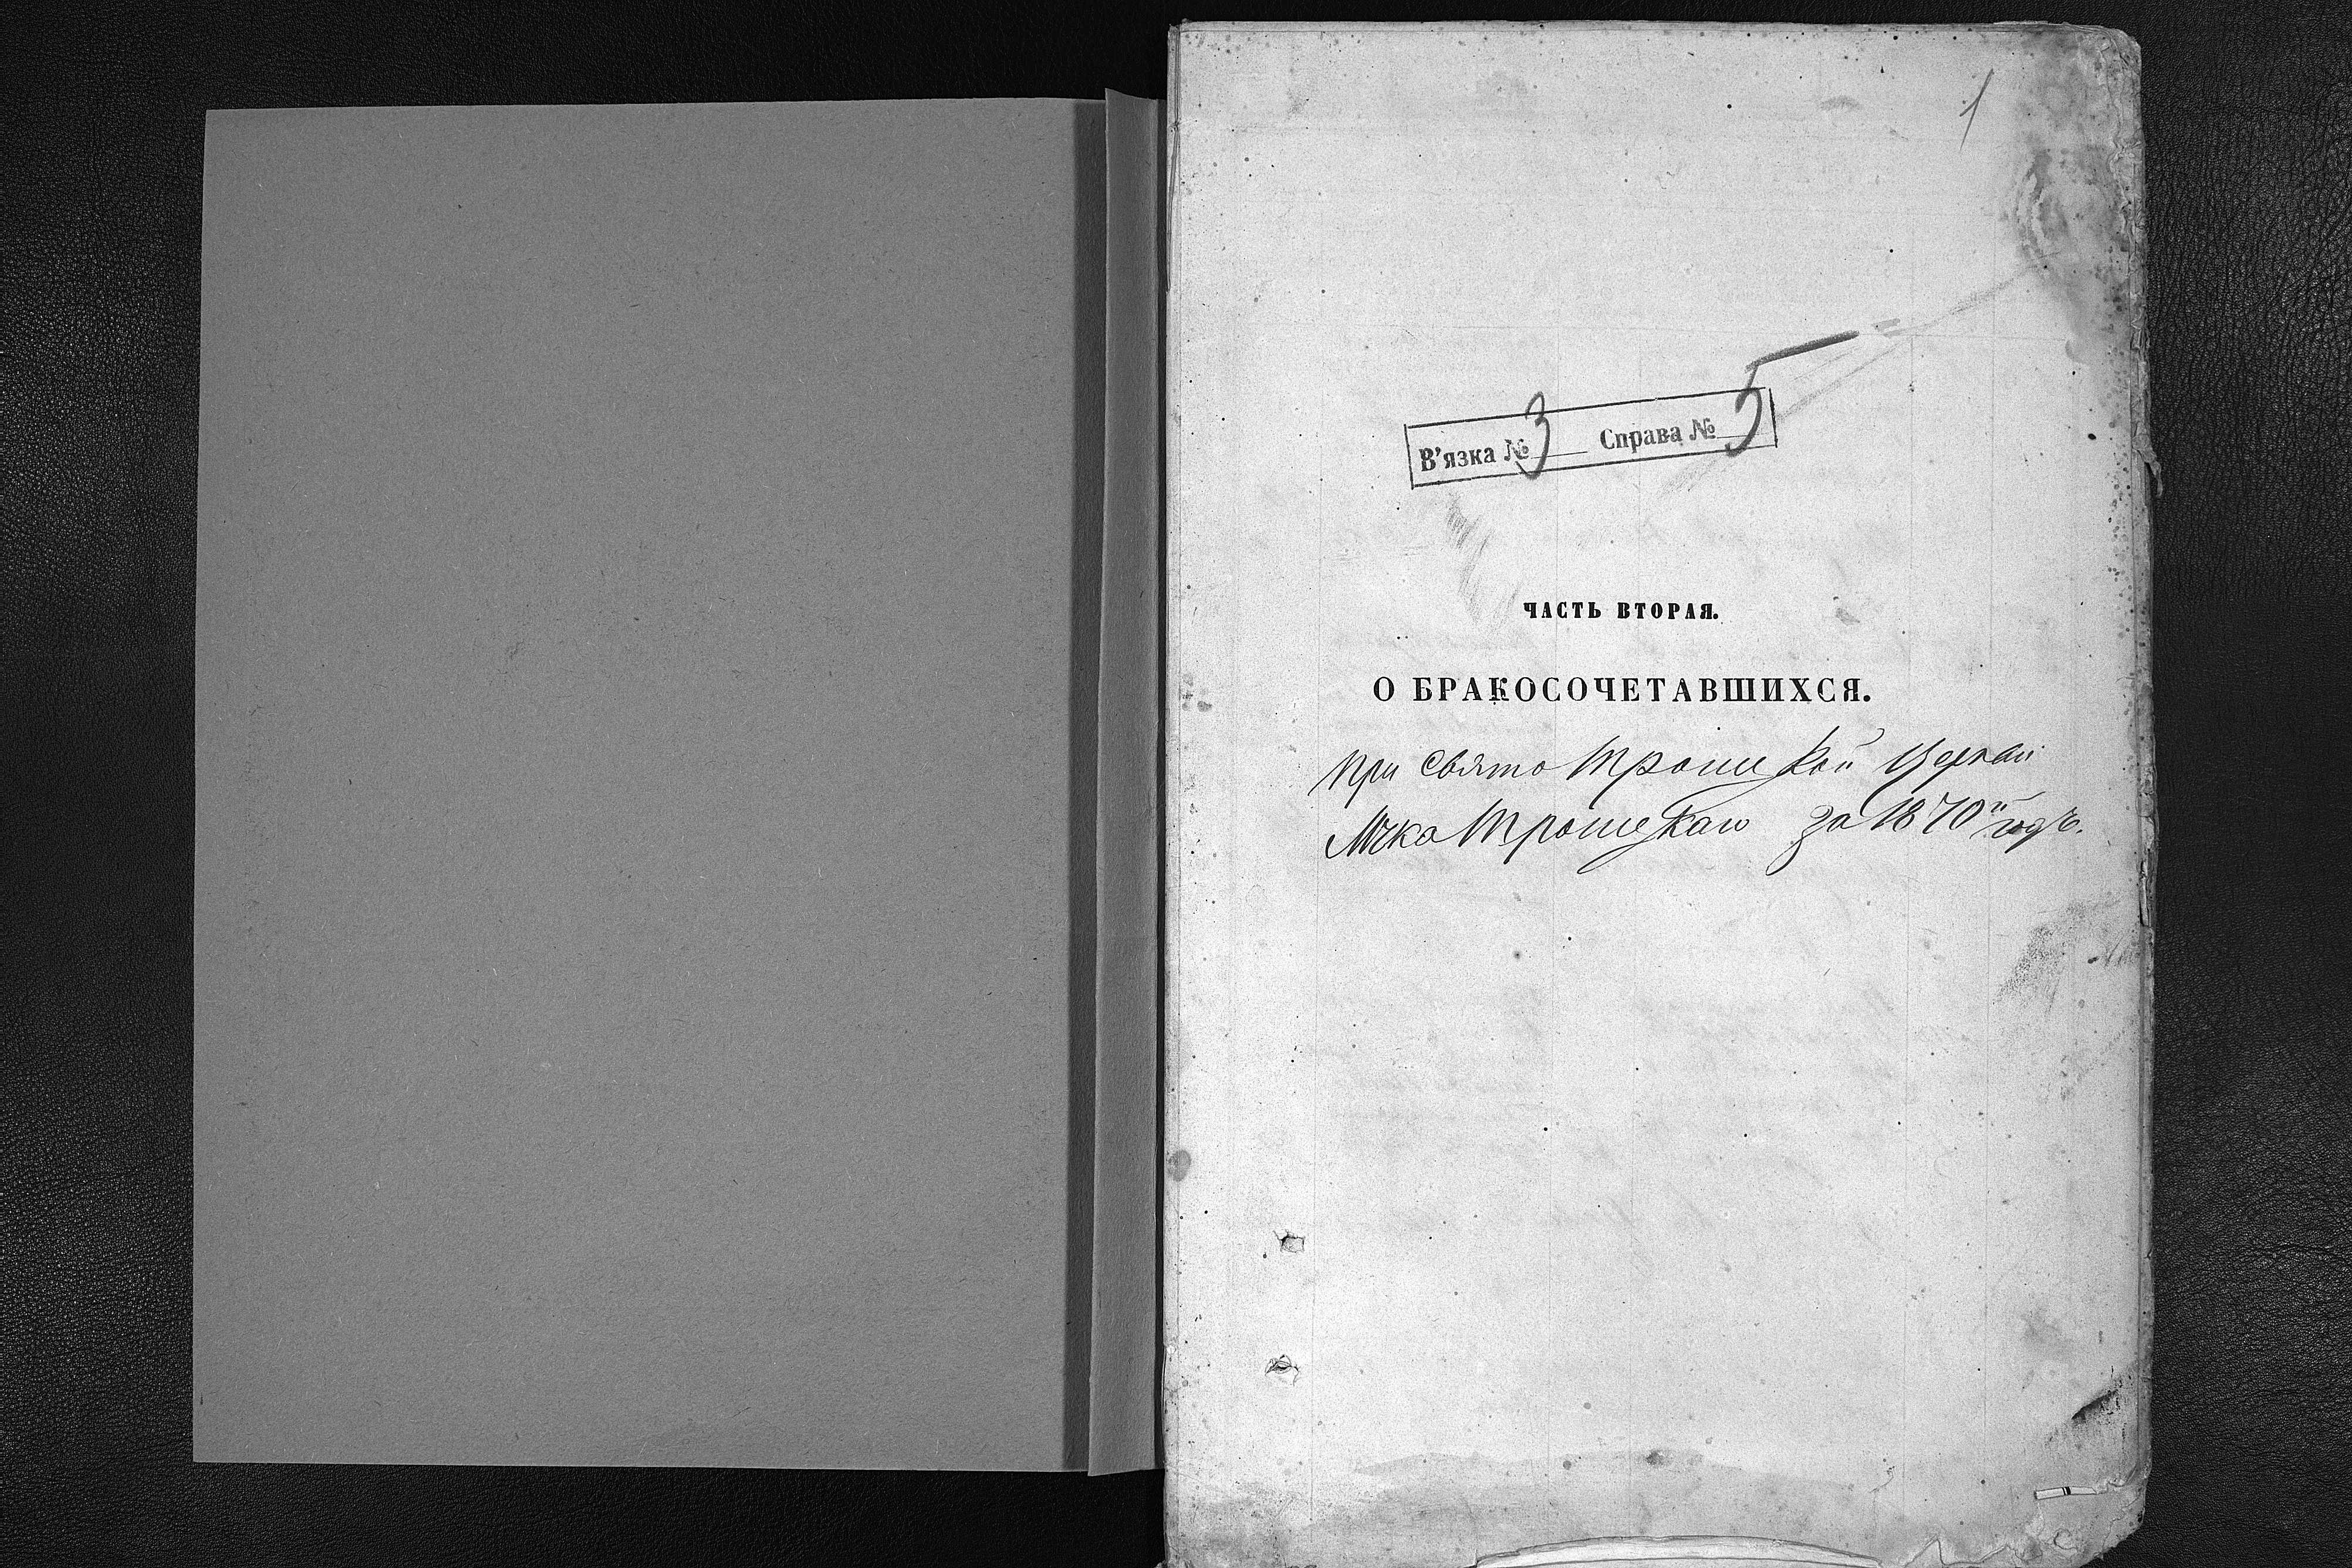 1
В'язка № 3 Справа № 5
ЧАСТЬ ВТОРАЯ.
О БРАКОСОЧЕТАВШИХСЯ.
При Свято Троицкой Церкви
М҃ч҃ка Троицкаго за 1870й годъ.